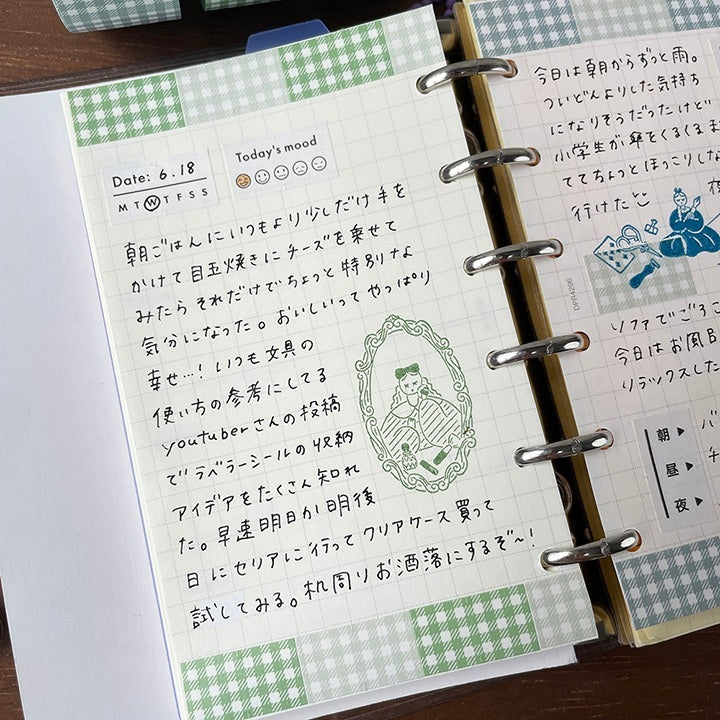 Date: 6.18
M T W T F S S
Today's mood
朝ごはんにいつもより少しだけ手を
かけて目玉焼きにチーズを乗せて
みたらそれだけでちょっと特別な
気分になった。おいしいってやっぱり
幸せ…!いつも文具の
使い方の参考にしてる
youtuberさんの投稿
でラベラーシールの収納
アイデアをたくさん知れ
た。早速明日か明後
日にセリアに行ってクリアケース買って
試してみる。机周りお洒落にするぞ〜!
今日は朝からずっと雨。
ついどんよりした気持ち
になりそうだったけど
小学生が傘をくるくる
ててちょっとほっこりし
行けた
DPR4296
ソファでごろご
今日はお風呂
リラックスした
朝 ▶
昼 ▶
夜 ▶